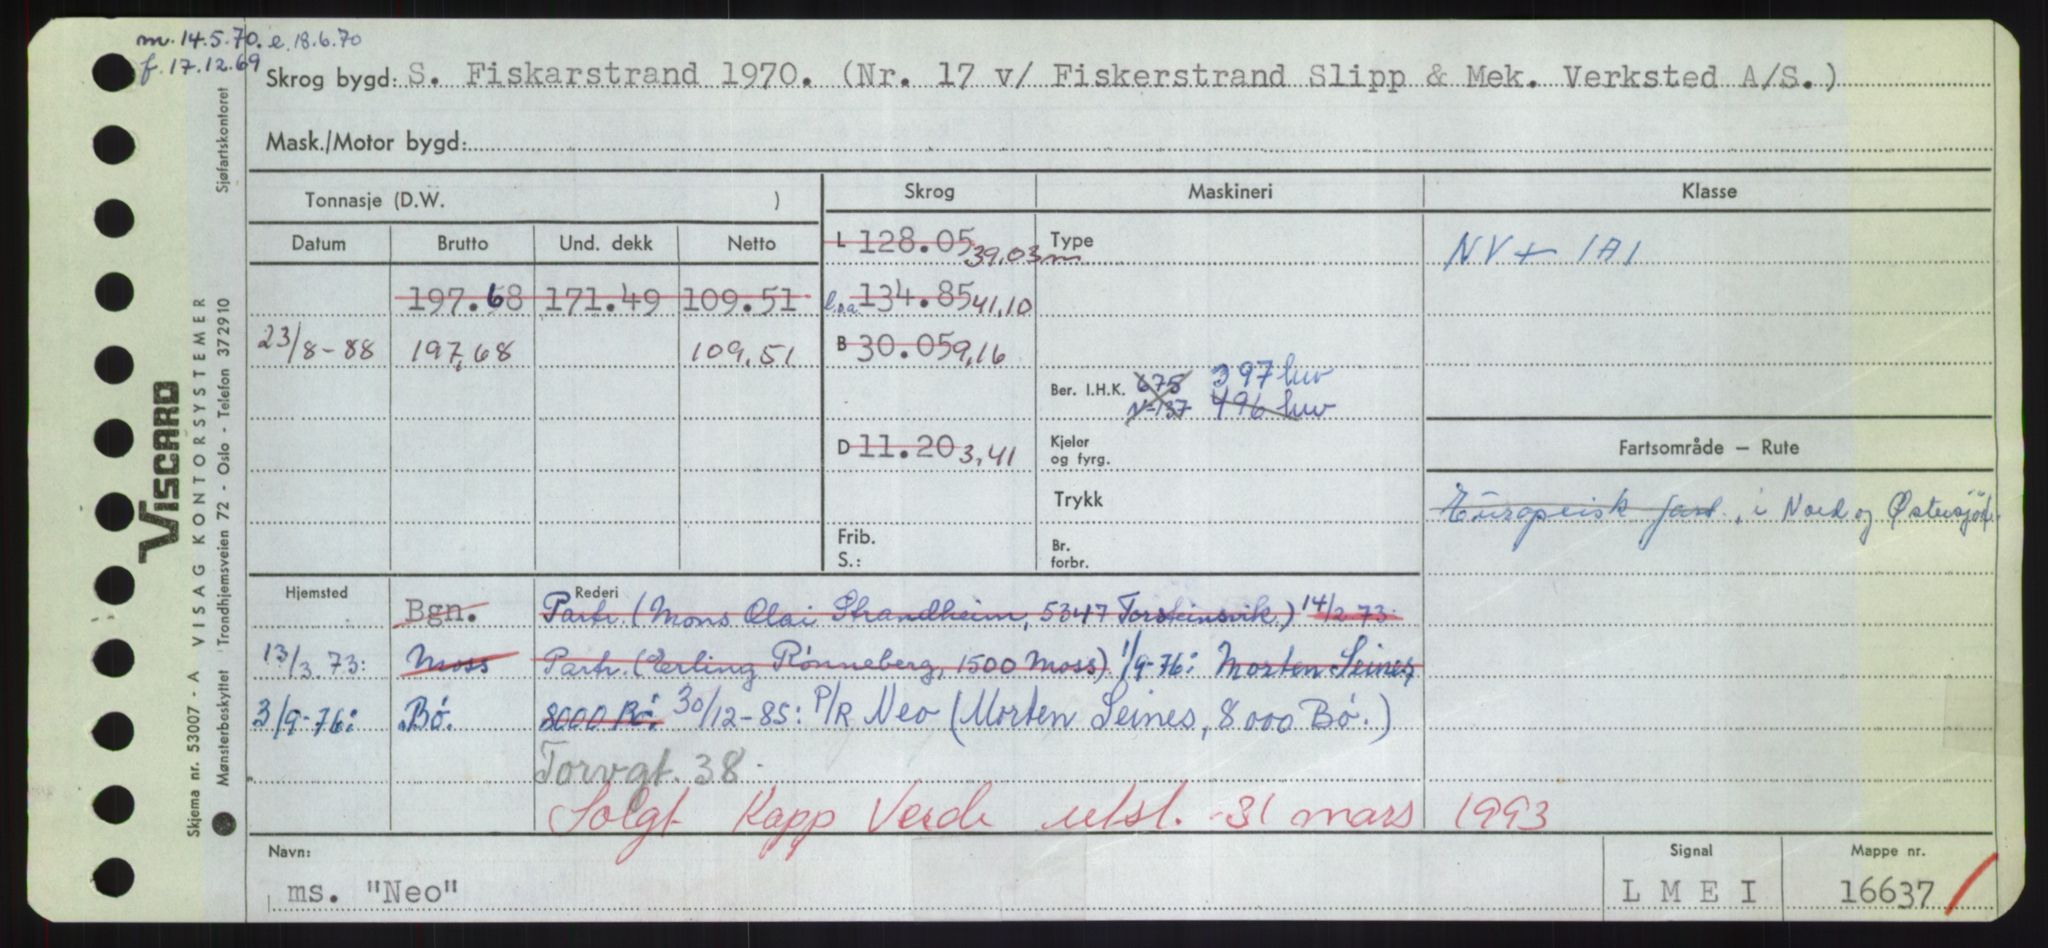 m. 14.5.70. e. 18.6.70
f. 17.12.69
Skrog bygd: S. Fiskarstrand 1970. (Nr. 17 v/ Fiskerstrand Slipp & Mek. Verksted A/S.)
Mask./Motor bygd:
Tonnasje (D.W. )
Skrog Maskineri Klasse
Datum Brutto Und. dekk Netto
L 128.05 39,03 m Type
NV + 1A1
197.68 171.49 109.51
l.o.a 134.85 41,10
23/8-88 197,68 109,51
B 30.05 9,16
Ber. I.H.K. 675 397 hw
N-137 496 hw
D 11.20 3,41
Kjeler
og fyrg.
Fartsområde – Rute
Trykk
Europeisk fart., i Nord og Østersjöf.
Frib.
S.:
Br.
forbr.
Hjemsted Rederi
Bgn. Partr. (Mons Olai Strandheim, 5347 Torsteinsvik.) 14/2 73.
13/3.73: Moss Partr. (Erling Rønneberg, 1500 Moss) 1/9-76: Morten Seines,
3/9-76: Bø. 8000 Bø. 30/12-85: P/R Neo (Morten Seines, 8000 Bø.)
Torvgt. 38.
Solgt Kapp Verde utsl. 31 mars 1993
Navn: Signal Mappe nr.
ms. "Neo" L M E I 16637
VISCARD
Skjema nr. 53007 - A VISAG KONTORSYSTEMER
Mønsterboskyttet Trondhjemsveien 72 - Oslo - Telefon 372910
Sjøfartskontoret